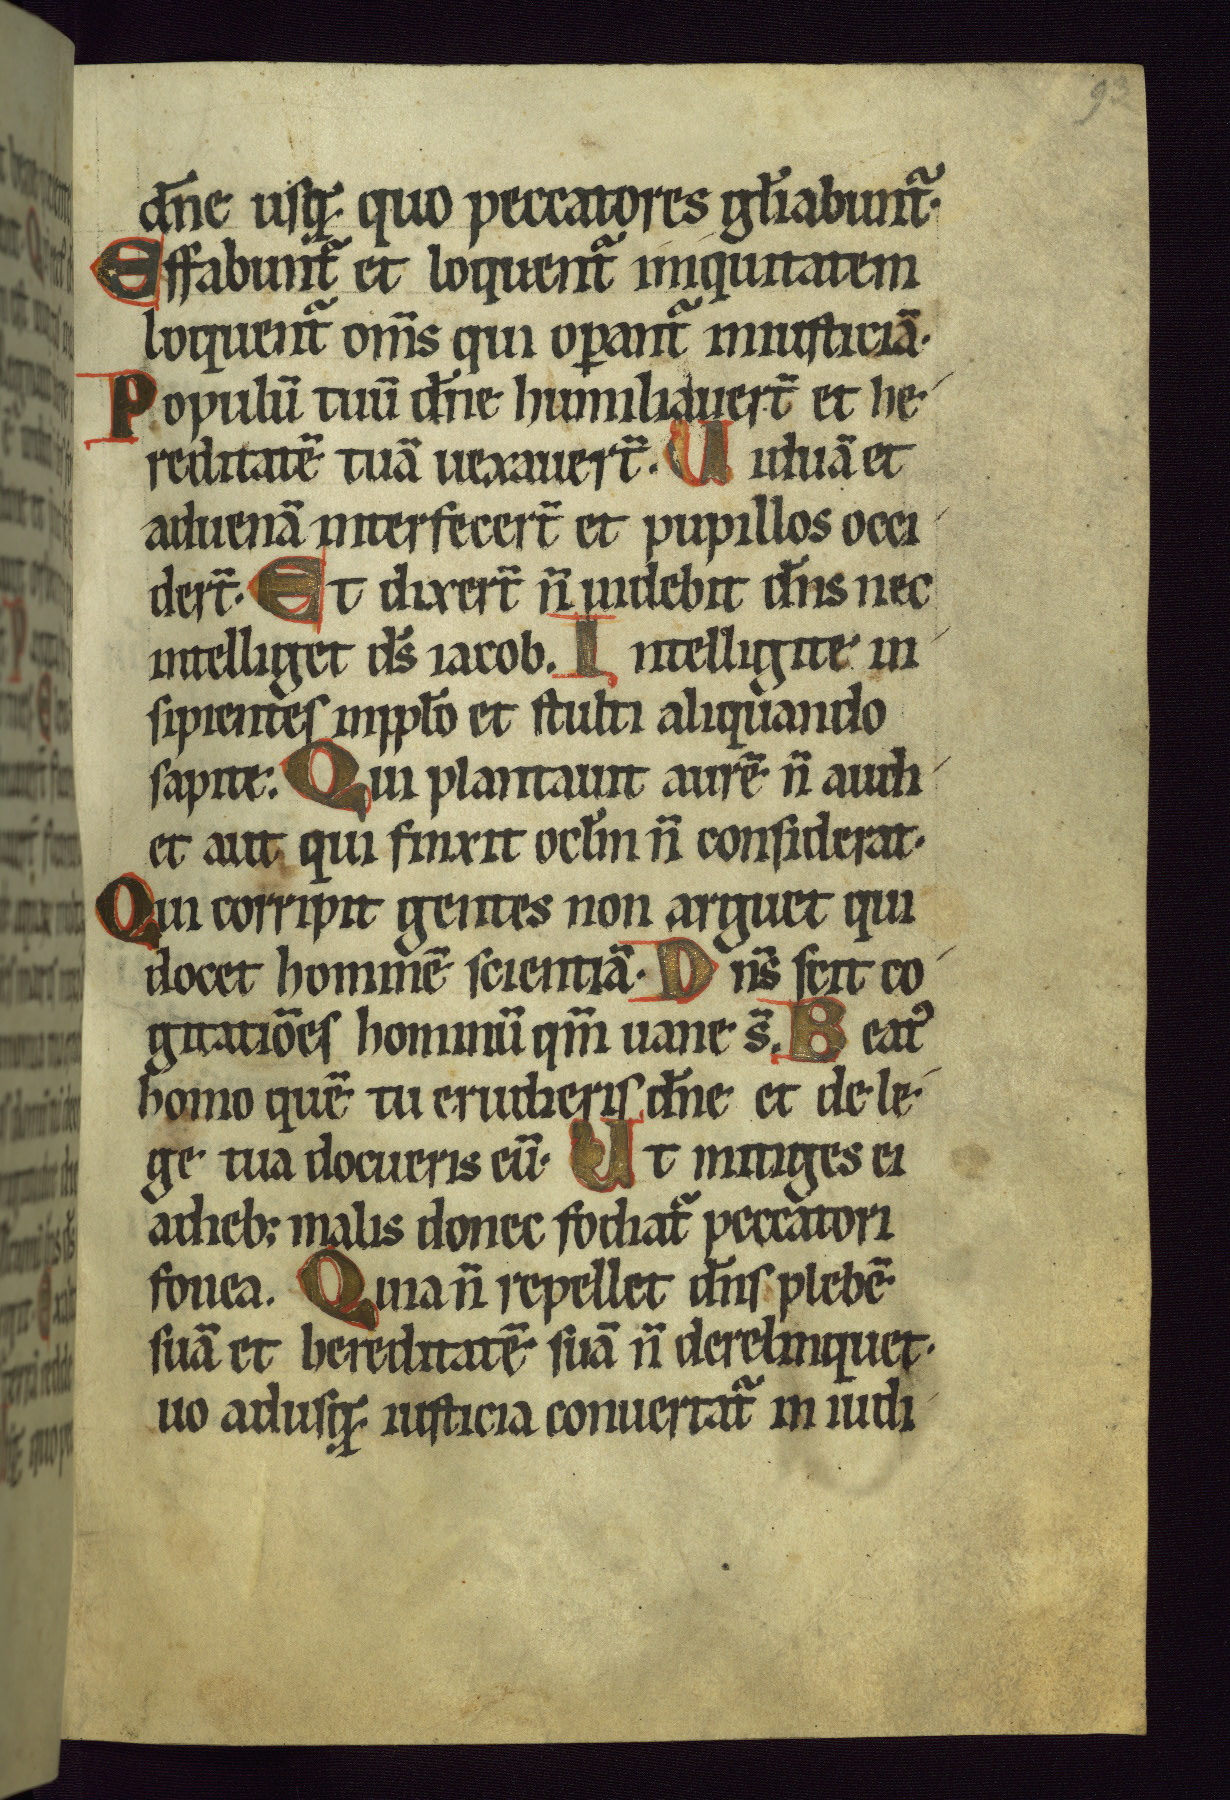 dn̄e usq; quo peccatores gl̄iabunt᷑.
Effabunt᷑ et loquent᷑ iniquitatem
loquent᷑ om̄s qui oꝑant᷑ iniusticiā.
Populū tuū dn̄e humiliauert̄ et he
reditatē tuā uexauert̄. Uiduā et
aduenā interfecert̄ et pupillos occi
dert̄. Et dixert̄ n̄ uidebit dn̄s nec
intelliget ds̄ iacob. Intelligite in
sipientes in ppl̄o et stulti aliquando
sapite. Qui plantauit aurē n̄ audi
et aut qui finxit ocl̄m n̄ considerat.
Qui corripit gentes non arguet qui
docet hominē scientiā. Dn̄s scit co
gitatiōes hominū qm̄ uane s̄. Beatꝰ
homo quē tu erudieris dn̄e et de le
ge tua docueris eū. Ut mitiges ei
a dieb; malis donec fodiat᷑ peccatori
fouea. Quia n̄ repellet dn̄s plebē
suā et hereditatē suā n̄ derelinquet.
uo adusq; iusticia conuertat᷑ in iudi
93